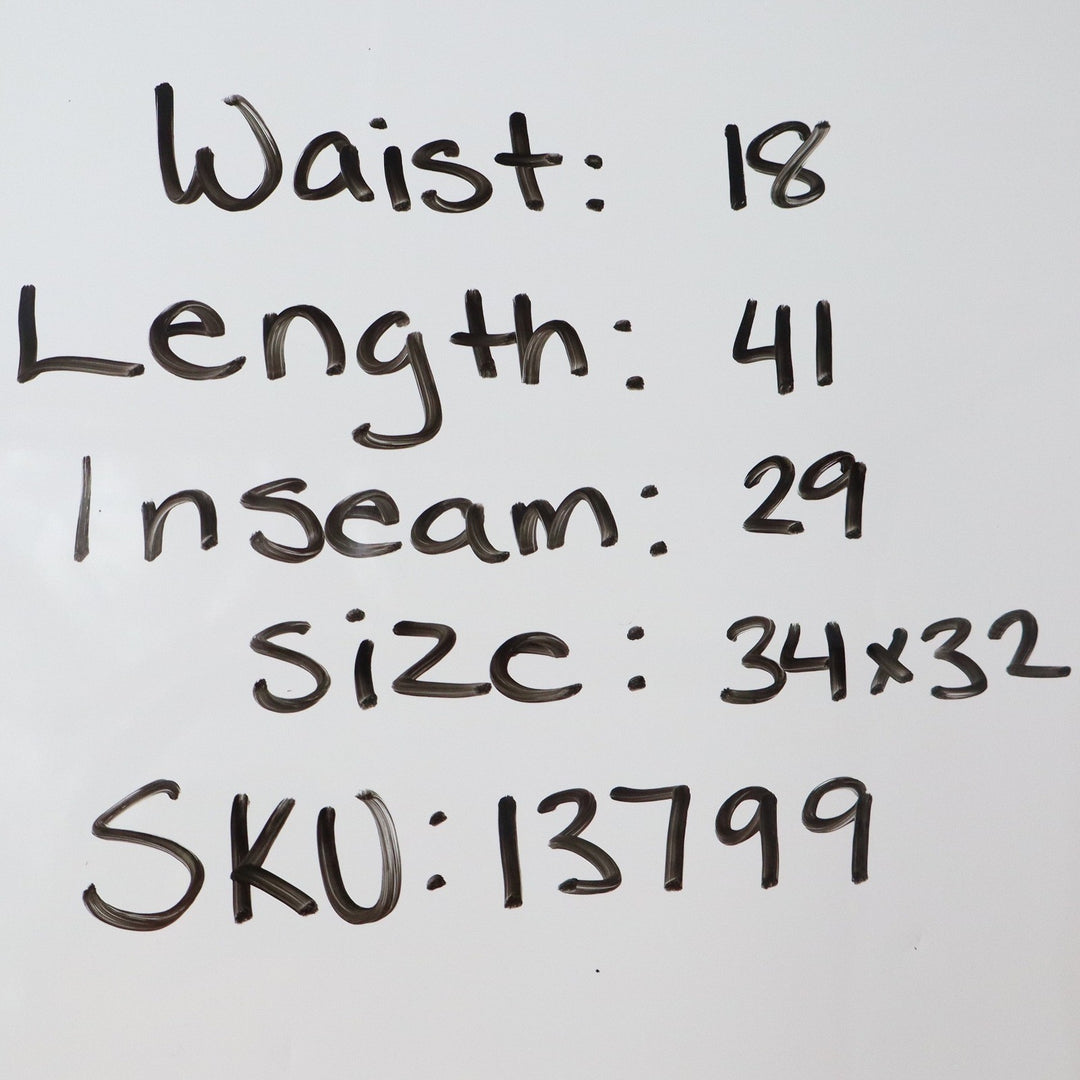 Waist: 18
Length: 41
Inseam: 29
Size: 34x32
SKU: 13799